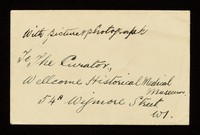 With picture & photograph
To, The Curator,
Wellcome Historical Medical
Museum,
54A Wigmore Street
W1.